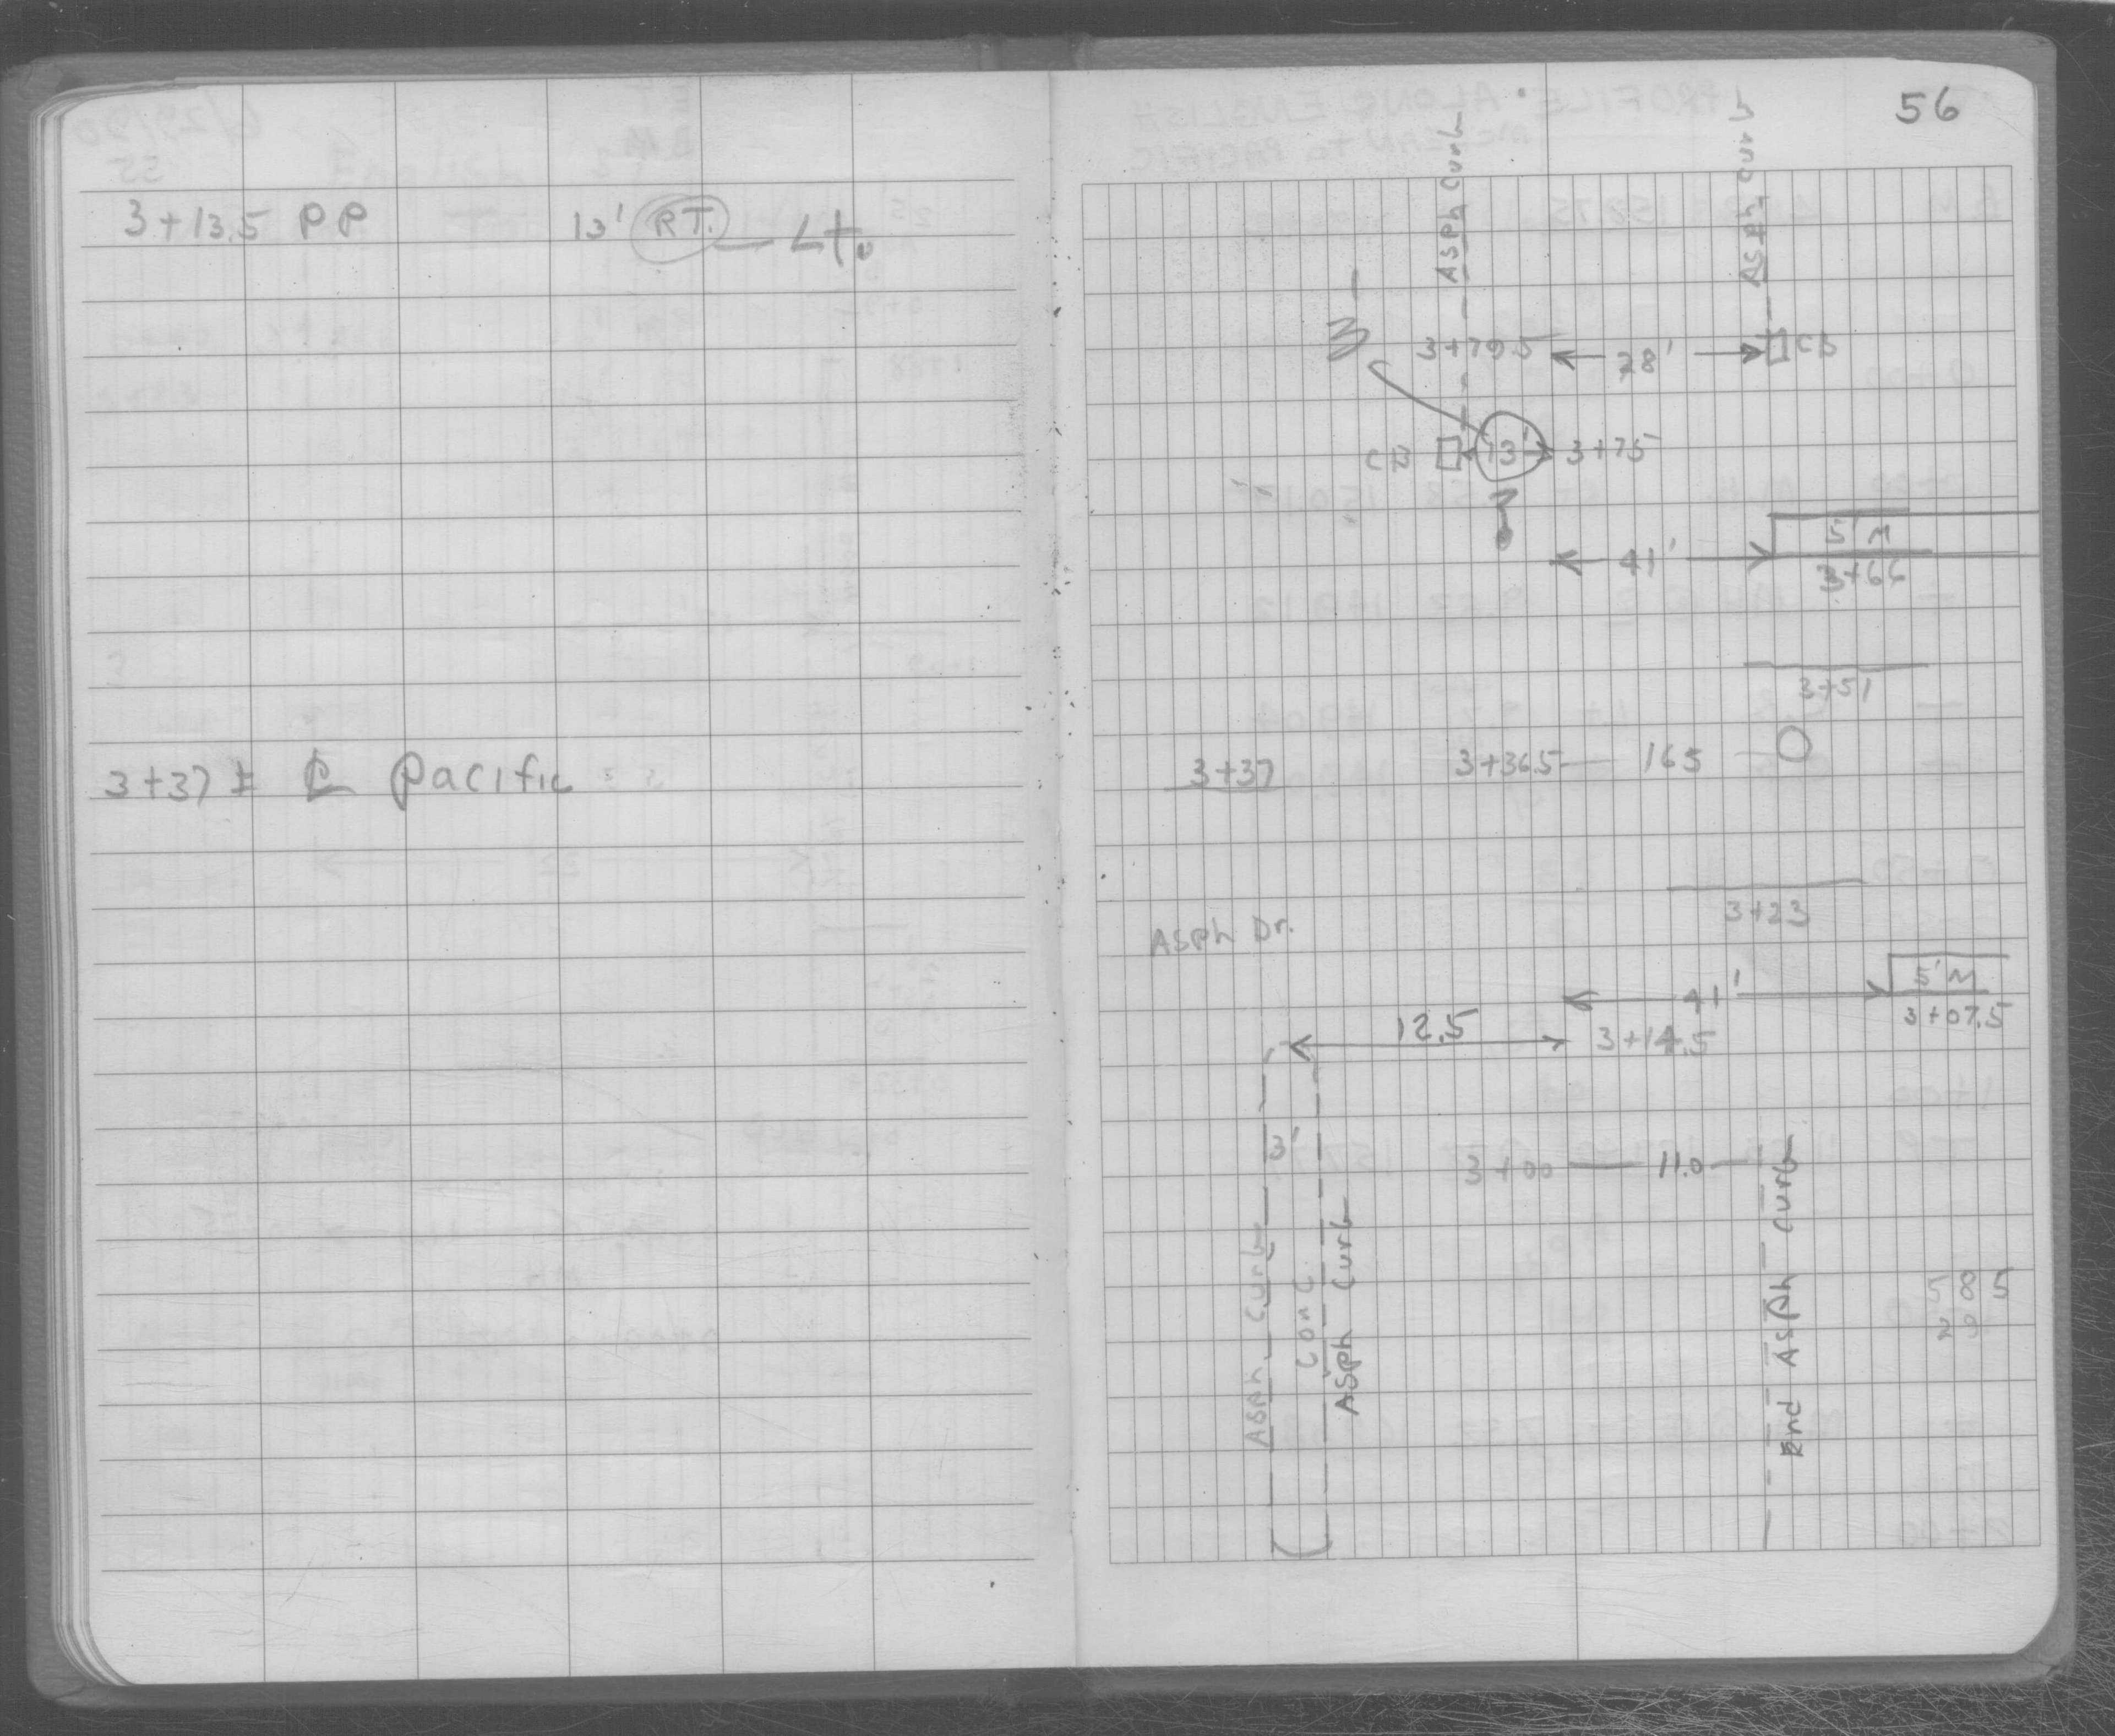 3+13.5 PP 13' RT. — Lt.
3+37 ± ℄ Pacific
56
Asph Curb
Asph Curb
28' CB
CB 13' 3+75
5' M
41'
3+66
3+51
3+37 3+36.5 — 16.5
3+23
Asph Dr.
5'
41'
3+07.5
12.5
3+14.5
3'
3+00 — 11.0
Asph Curb
Conc
Asph Curb
End Asph Curb
5 8 5